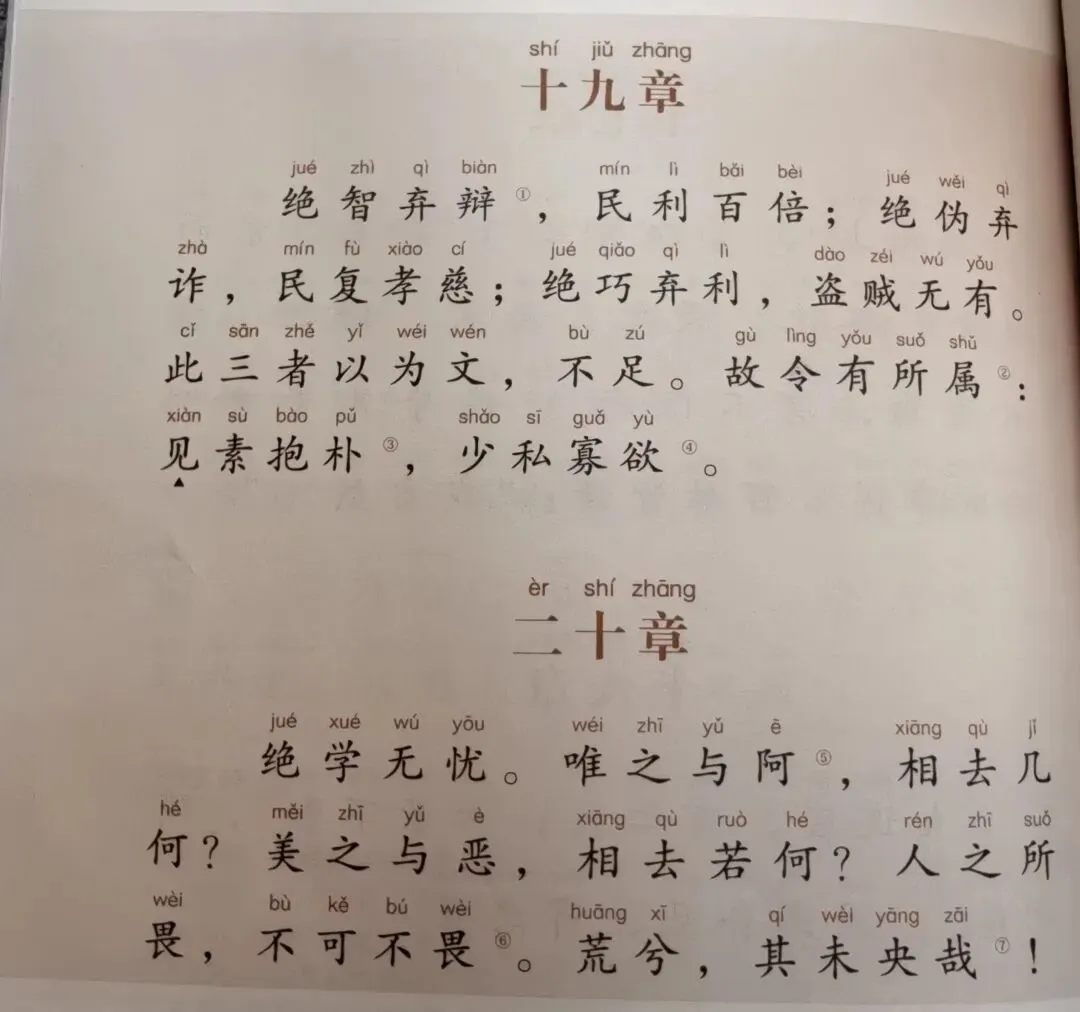 shí jiǔ zhāng
十九章
jué zhì qì biàn mín lì bǎi bèi jué wěi qì
绝智弃辩①，民利百倍；绝伪弃
zhà mín fù xiào cí jué qiǎo qì lì dào zéi wú yǒu
诈，民复孝慈；绝巧弃利，盗贼无有。
cǐ sān zhě yǐ wéi wén bù zú gù lìng yǒu suǒ shǔ
此三者以为文，不足。故令有所属②：
xiàn sù bào pǔ shǎo sī guǎ yù
见素抱朴③，少私寡欲④。
▲
èr shí zhāng
二十章
jué xué wú yōu wéi zhī yǔ ē xiāng qù jǐ
绝学无忧。唯之与阿⑤，相去几
hé měi zhī yǔ è xiāng qù ruò hé rén zhī suǒ
何？美之与恶，相去若何？人之所
wèi bù kě bú wèi huāng xī qí wèi yāng zāi
畏，不可不畏⑥。荒兮，其未央哉⑦！